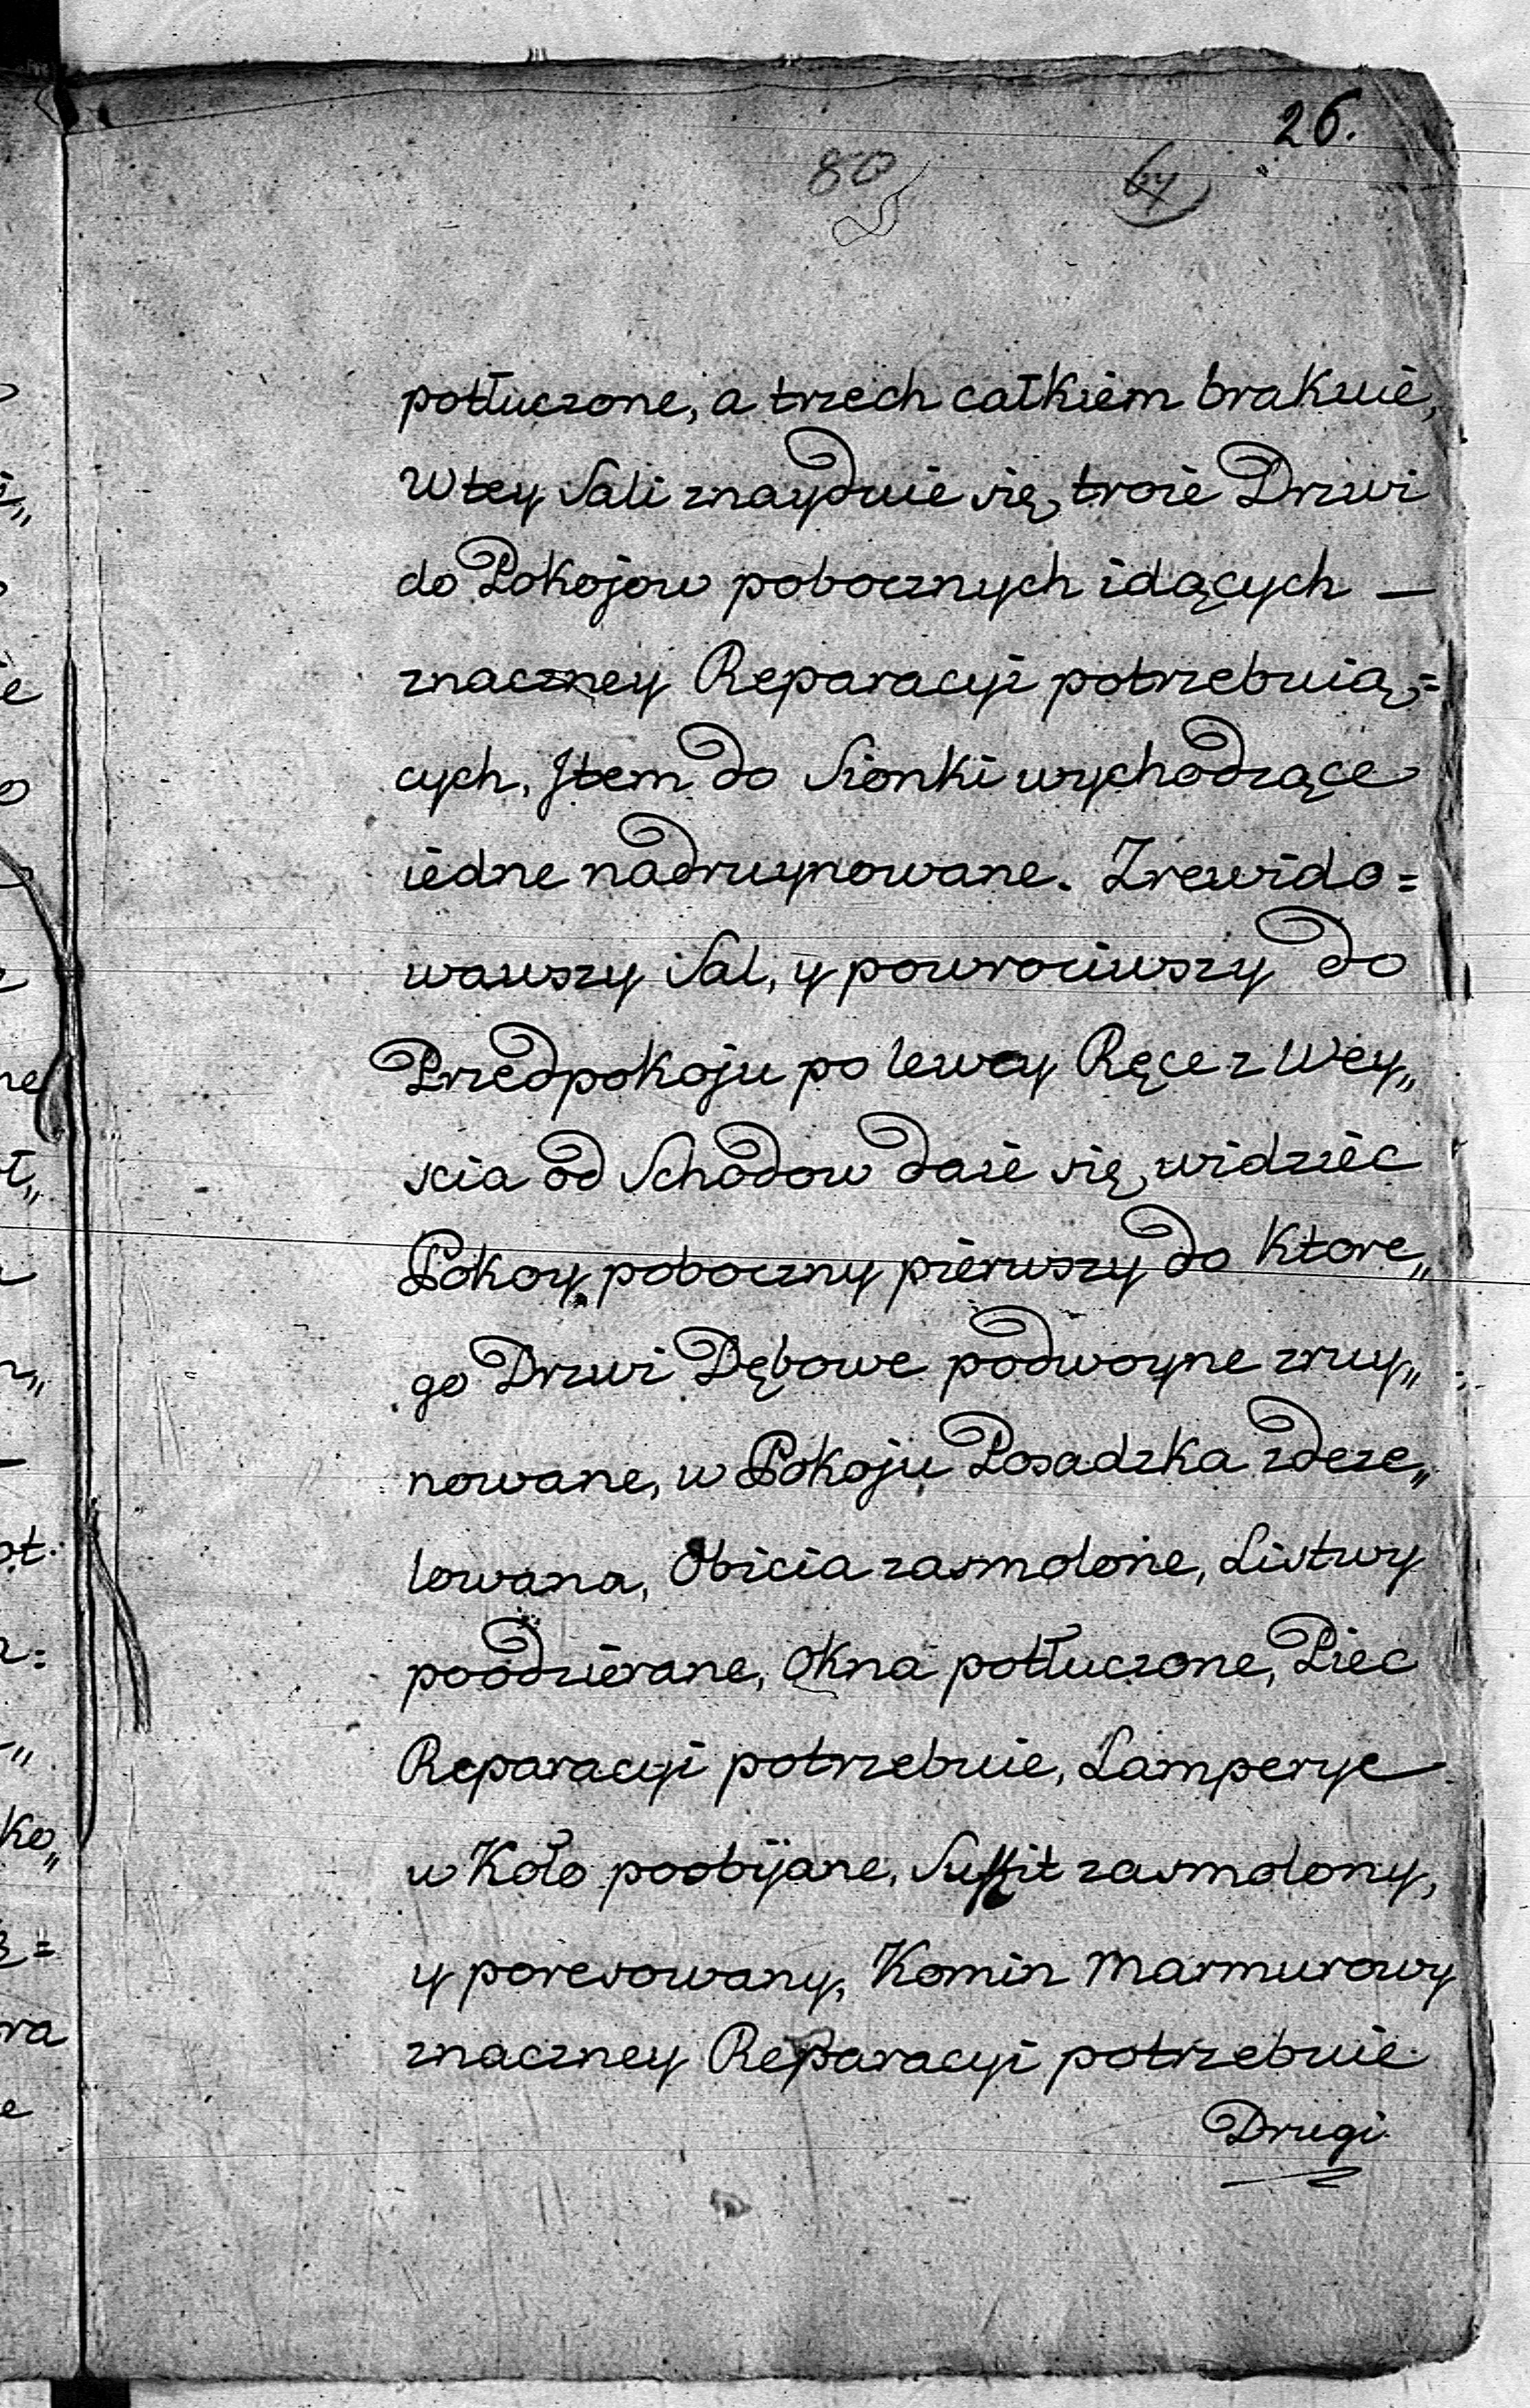 26.
80
potłuczone, a trzech całkiem brakuie,
W tey Sali znayduie się troie Drzwi
do Pokojow pobocznych idących —
znaczney Reparacyi potrzebuią=
cych, Jtem do Sionki wychodzące
iedne nadruynowane. Zrewido=
wawszy Sal, y powrociwszy do
Przedpokoju po lewey Ręce z Wey„
scia od Schodow daie się widziec
Pokoy poboczny pierwszy do Ktore„
go Drzwi Dębowe podwoyne zruy„
nowane, w Pokoju Posadzka zdeze„
lowana, Obicia zasmolone, Listwy
poodzierane, Okna potłuczone, Piec
Reparacyi potrzebuie, Lamperye
w Koło poobijane, Suffit zasmolony,
y poresowany, Komin Marmurowy
znaczney Reparacyi potrzebuie
Drugi